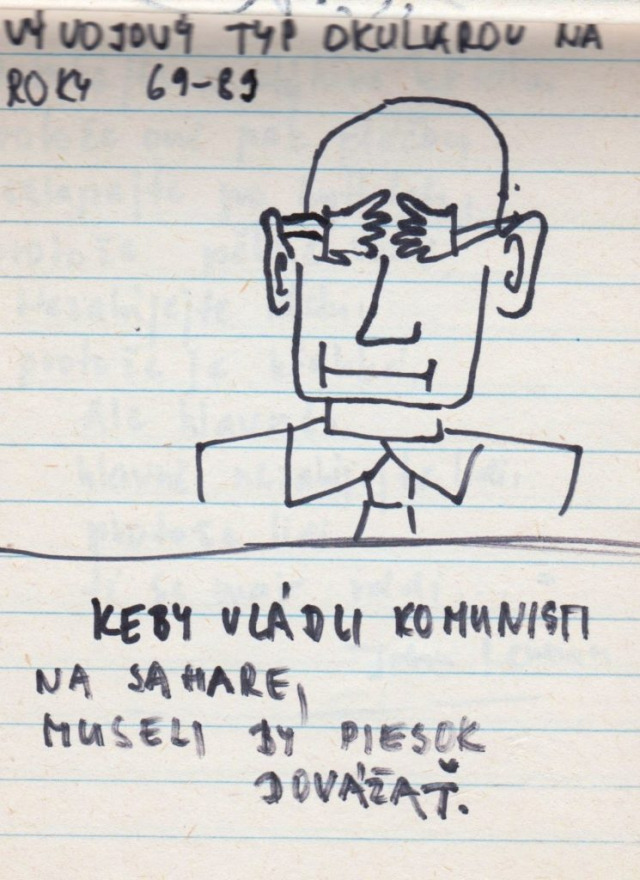 VÝVOJOVÝ TYP OKULIAROV NA
ROKY 69-89
KEBY VLÁDLI KOMUNISTI
NA SAHARE,
MUSELI BY PIESOK
DOVÁŽAŤ.